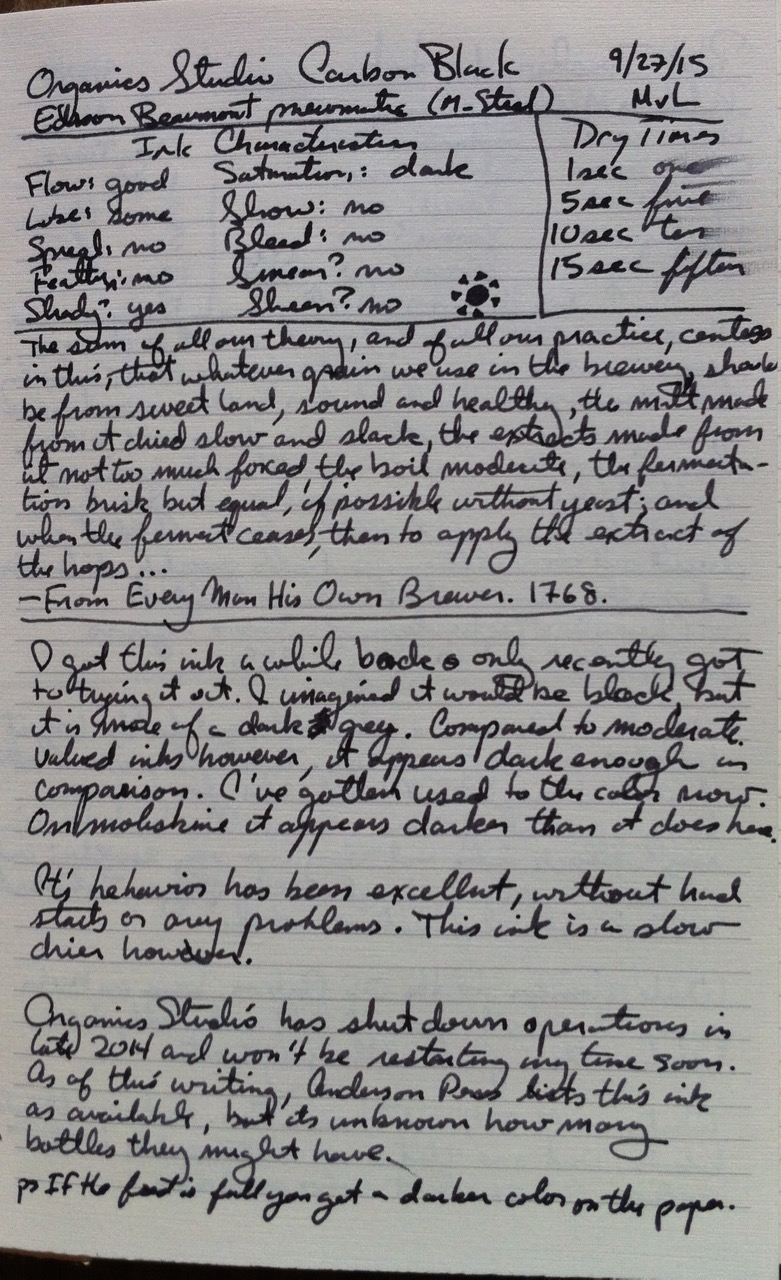 Organics Studio Carbon Black 9/27/15
Edison Beaumont pneumatic (M-Steel) MvL
Ink Characteristics
Flow: good Saturation: dark
Lube: some Show: no
Spread: no Bleed: no
Feather: no Smear? no
Shady? yes Sheen? no
Dry Times
1sec one
5sec five
10sec ten
15sec fifteen
The sum of all our theory, and of all our practice, centers
in this, that whatever grain we use in the brewery, should
be from sweet land, sound and healthy, the malt made
from it dried slow and slack, the extracts made from
it not too much forced, the boil moderate, the fermenta-
tion brisk but equal, if possible without yeast; and
when the ferment ceases, then to apply the extract of
the hops...
—From Every Man His Own Brewer. 1768.
I got this ink a while back & only recently got
to trying it out. I imagined it would be black, but
it is more of a dark grey. Compared to moderate
valued inks however, it appears dark enough in
comparison. I've gotten used to the color now.
On moleskine it appears darker than it does here.
It's behavior has been excellent, without hard
starts or any problems. This ink is a slow
drier however.
Organics Studio has shut down operations in
late 2014 and won't be restarting any time soon.
As of this writing, Anderson Pens lists this ink
as available, but its unknown how many
bottles they might have.
ps If the feed is full you get a darker color on the paper.